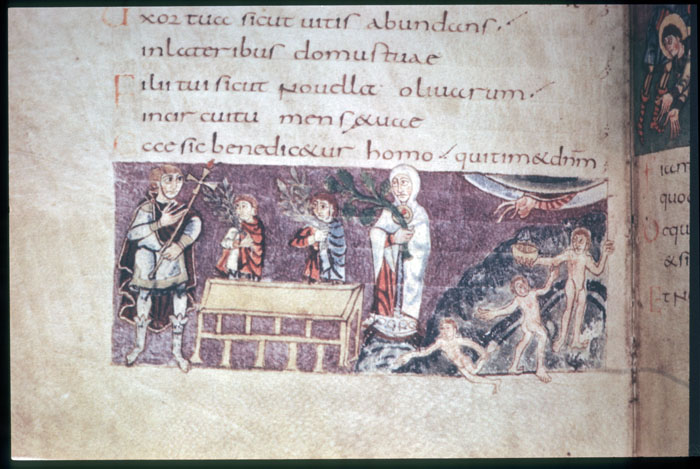 Uxor tua sicut uitis abundans
inlateribus domustuae
Filii tui sicut nouella oliuarum
incircuitu mens&uae
Ecce sic benedic&ur homo quitim&dnm
iam
quo
&si